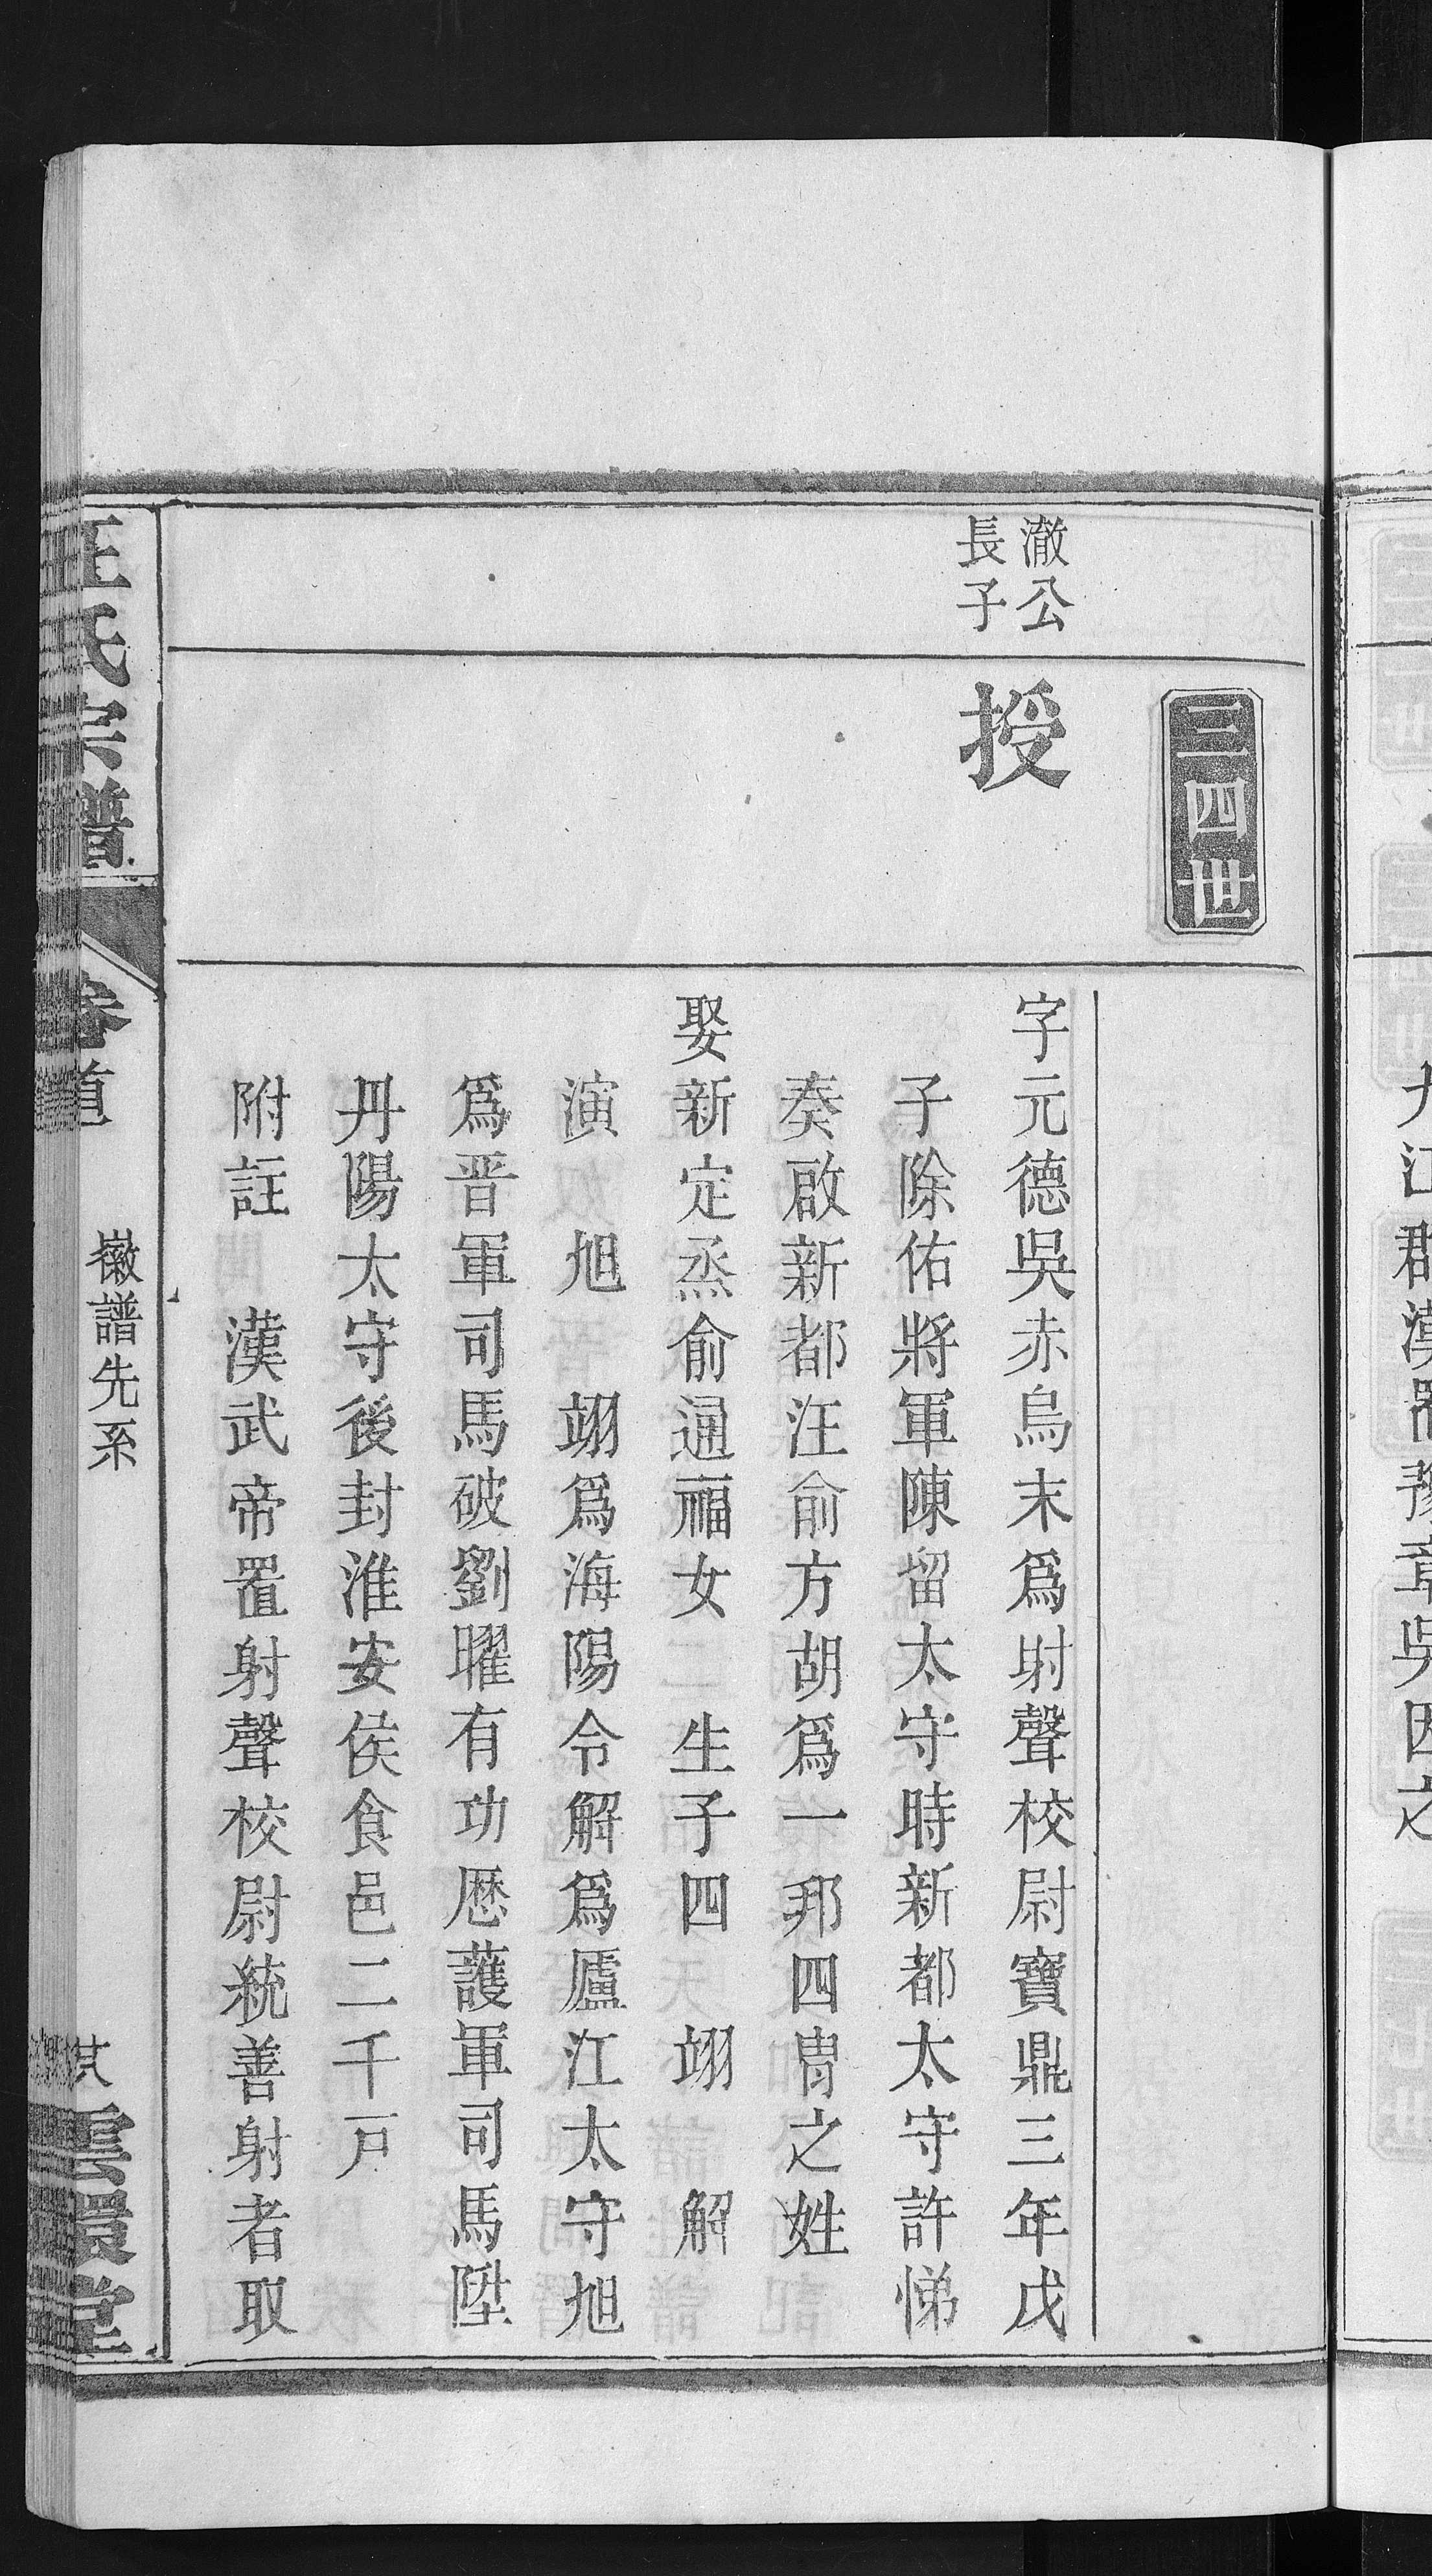 三四世
澈公
長子
授
字元德吳赤烏末爲射聲校尉寶鼎三年戊
子除佑將軍陳留太守時新都太守許悌
奏啟新都汪俞方胡爲一邦四胄之姓
娶新定烝俞通福女　生子四　翊　解
演　旭　翊爲海陽令解爲廬江太守旭
爲晋軍司馬破劉曜有功厯護軍司馬陞
丹陽太守後封淮安侯食邑二千戸
附註　漢武帝置射聲校尉統善射者取
汪氏宗譜
卷首
徽譜先系
雲環堂